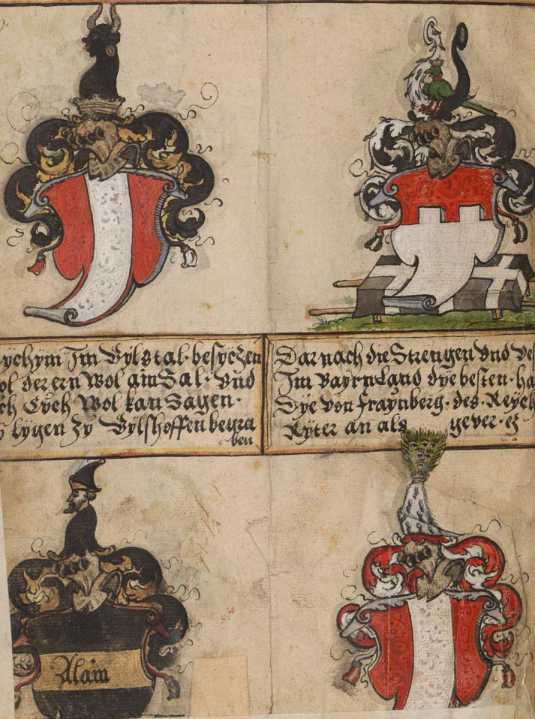 Im Vyldtal. besyczen
der ern wol ain Sal. vnd
Eych wol kan sagen.
lygen zv Vylshoffen begra
ben
Darnach die Strengen vnd
Im Bayrnland dye besten. ha
Dye von fraynberg. des Reych
Ryter an als gever. e
Alaim